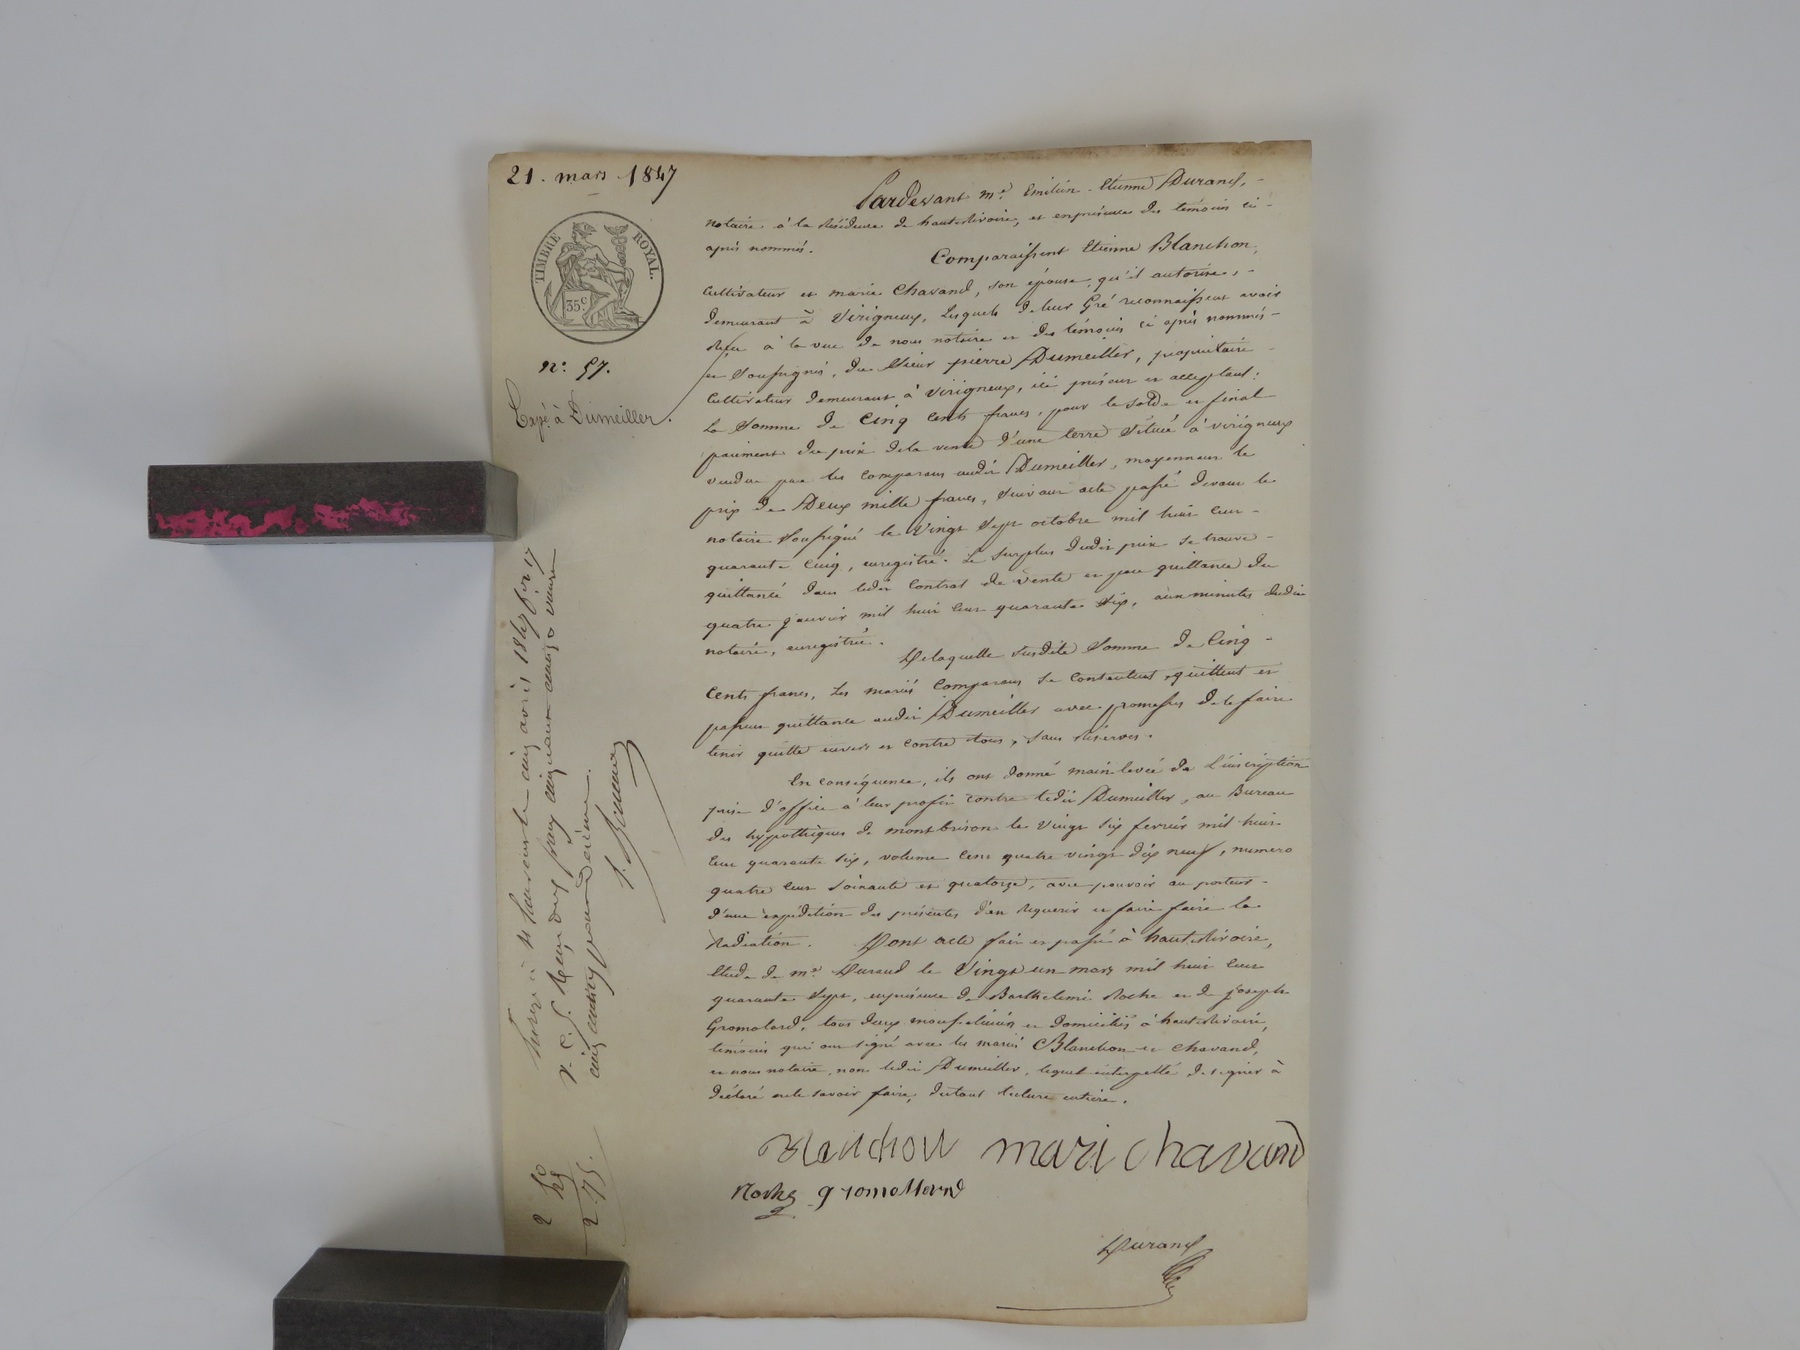 21. mars 1847
TIMBRE ROYAL.
35 c.
n.° 57.
Expé. à Dumeiller.
Pardevant m.e Emilien-Etienne Durand,
notaire à la Résidence de hauterivoire, et en présence des témoins ci-
après nommés.
Comparaissent Etienne Blanchon,
cultivateur et marie Chavand, son épouse, qu'il autorise,
demeurant à Virigneux, Lesquels de leur Gré reconnaissent avoir
Reçu à la vue de nous notaire et des témoins ci après nommés
et soussignés, du sieur pierre Dumeiller, propriétaire
cultivateur demeurant à Virigneux, ici présent et acceptant:
La somme de Cinq cents francs, pour le solde et final
paiement du prix de la vente d'une terre située à virigneux
vendue par les comparans audit Dumeiller, moyennant le
prix de Deux mille francs, suivant acte passé devant le
notaire soussigné le Vingt sept octobre mil huit cent
quarante cinq, enregistré. Le surplus dudit prix se trouve
quittancé dans ledit contrat de vente et par quittance du
quatre janvier mil huit cent quarante six, aux minutes dudit
notaire, enregistrée.
De laquelle susdite somme de Cinq
Cents francs, Les mariés comparans se contentent, quittent et
passent quittance audit Dumeiller avec promesses de le faire
tenir quitte envers et contre tous, sans réserves.
En conséquence, ils ont donné main levée de L'inscription
prise d'office à leur profit contre ledit Dumeiller, au Bureau
des hypothèques de montbrison le vingt six fevrier mil huit
cent quarante six, volume cent quatre vingt dix neuf, numero
quatre cent soixante et quatorze, avec pouvoir au porteur
d'une expédition des présentes d'en requerir et faire faire la
Radiation. Dont acte fait et passé à hauterivoire,
Etude de m.e Durand le Vingt un mars mil huit cent
quarante sept, en présence de Barthelemi Roche et de joseph
Gromolard, tous deux domiciliés à hauterivoire,
témoins qui ont signé avec les mariés Blanchon et Chavand,
et nous notaire, non ledit Dumeiller, lequel interpellé de signer à
déclaré ne le savoir faire, du tout lecture entière.
Blanchon mari chavand
Roche gromollard
Durand
cinq avril 1847
deux francs cinquante centimes
cinq centimes pour décime.
2 50
25
2-75.